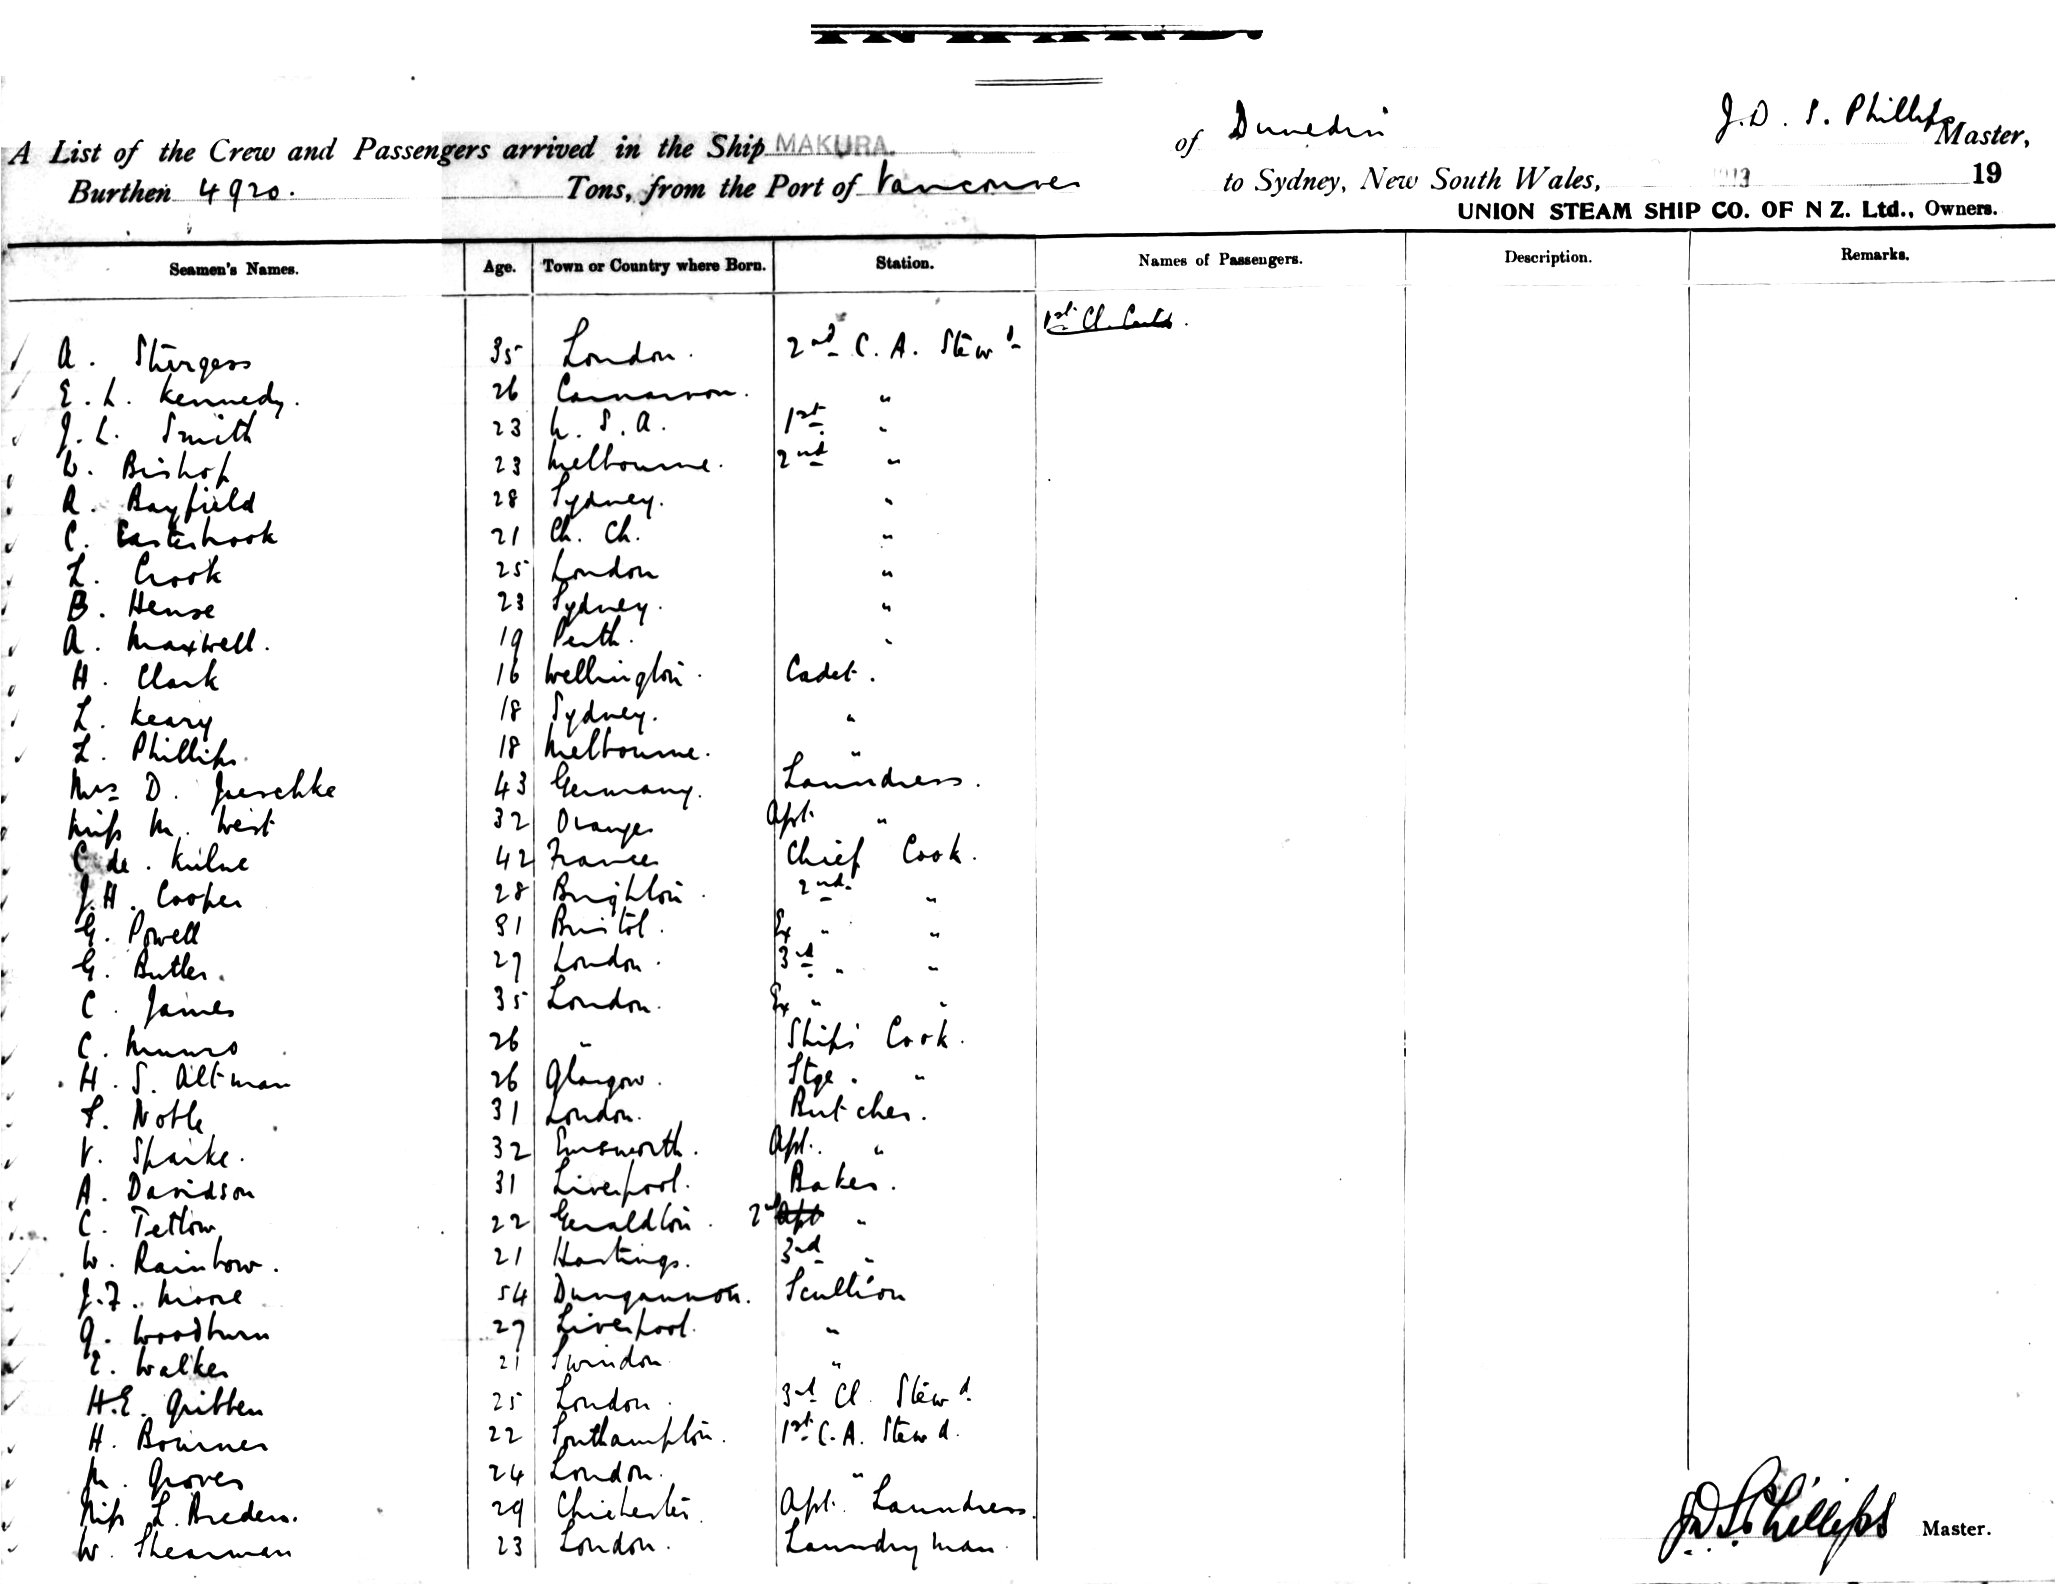 of Dunedin J. D. S. Phillips Master,
A List of the Crew and Passengers arrived in the Ship MAKURA.
Burthen 4920. Tons, from the Port of Vancouver to Sydney, New South Wales, 19
UNION STEAM SHIP CO. OF N Z. Ltd., Owners.
Seamen's Names. Age. Town or Country where Born. Station. Names of Passengers. Description. Remarks.
1st Cl.
A. Sturgess 35 London. 2nd C. A. Stewd
E. L. Kennedy. 26 Carnarvon. "
J. L. Smith 23 U. S. A. 1st "
W. Bishop 23 Melbourne. 2nd "
R. Bayfield 28 Sydney. "
C. Easterbrook 21 Ch. Ch. "
L. Crook 25 London "
B. Hense 23 Sydney. "
A. Maxwell. 19 Perth. "
H. Clark 16 Wellington. Cadet.
L. Keary 18 Sydney. "
L. Phillips. 18 Melbourne. "
Mrs D. Jaeschke 43 Germany. Laundress.
Miss M. West 32 Orange Apt. "
C de. 42 France Chief Cook.
J. H. Cooper 28 Brighton. 2nd. "
G. Powell 31 Bristol. Ex " "
G. Butler. 27 London. 3rd " "
C. James 35 London. Ex " "
C. Munro 26 " Ships Cook.
H. S. Altman 26 Glasgow. Stge. "
F. Noble 31 London. Butcher.
V. Sparke. 32 Emsworth. Apt. "
A. Davidson 31 Liverpool. Baker.
C. Tetlow 22 Geraldton. 2nd Apt "
W. Rainbow. 21 Hastings. 3rd "
J. F. Moore 54 Dungannon. Scullion
G. Woodburn 27 Liverpool. "
E. Walker 21 Swindon "
H. E. Gribben 25 London. 3rd Cl. Stewd.
H. Bourner 22 Southampton. 1st C. A. Stewd.
M. Groves 24 London. "
Miss L. Breden. 29 Chichester. Apt. Laundress.
W. Shearman 23 London. Laundryman.
J D S Phillips Master.